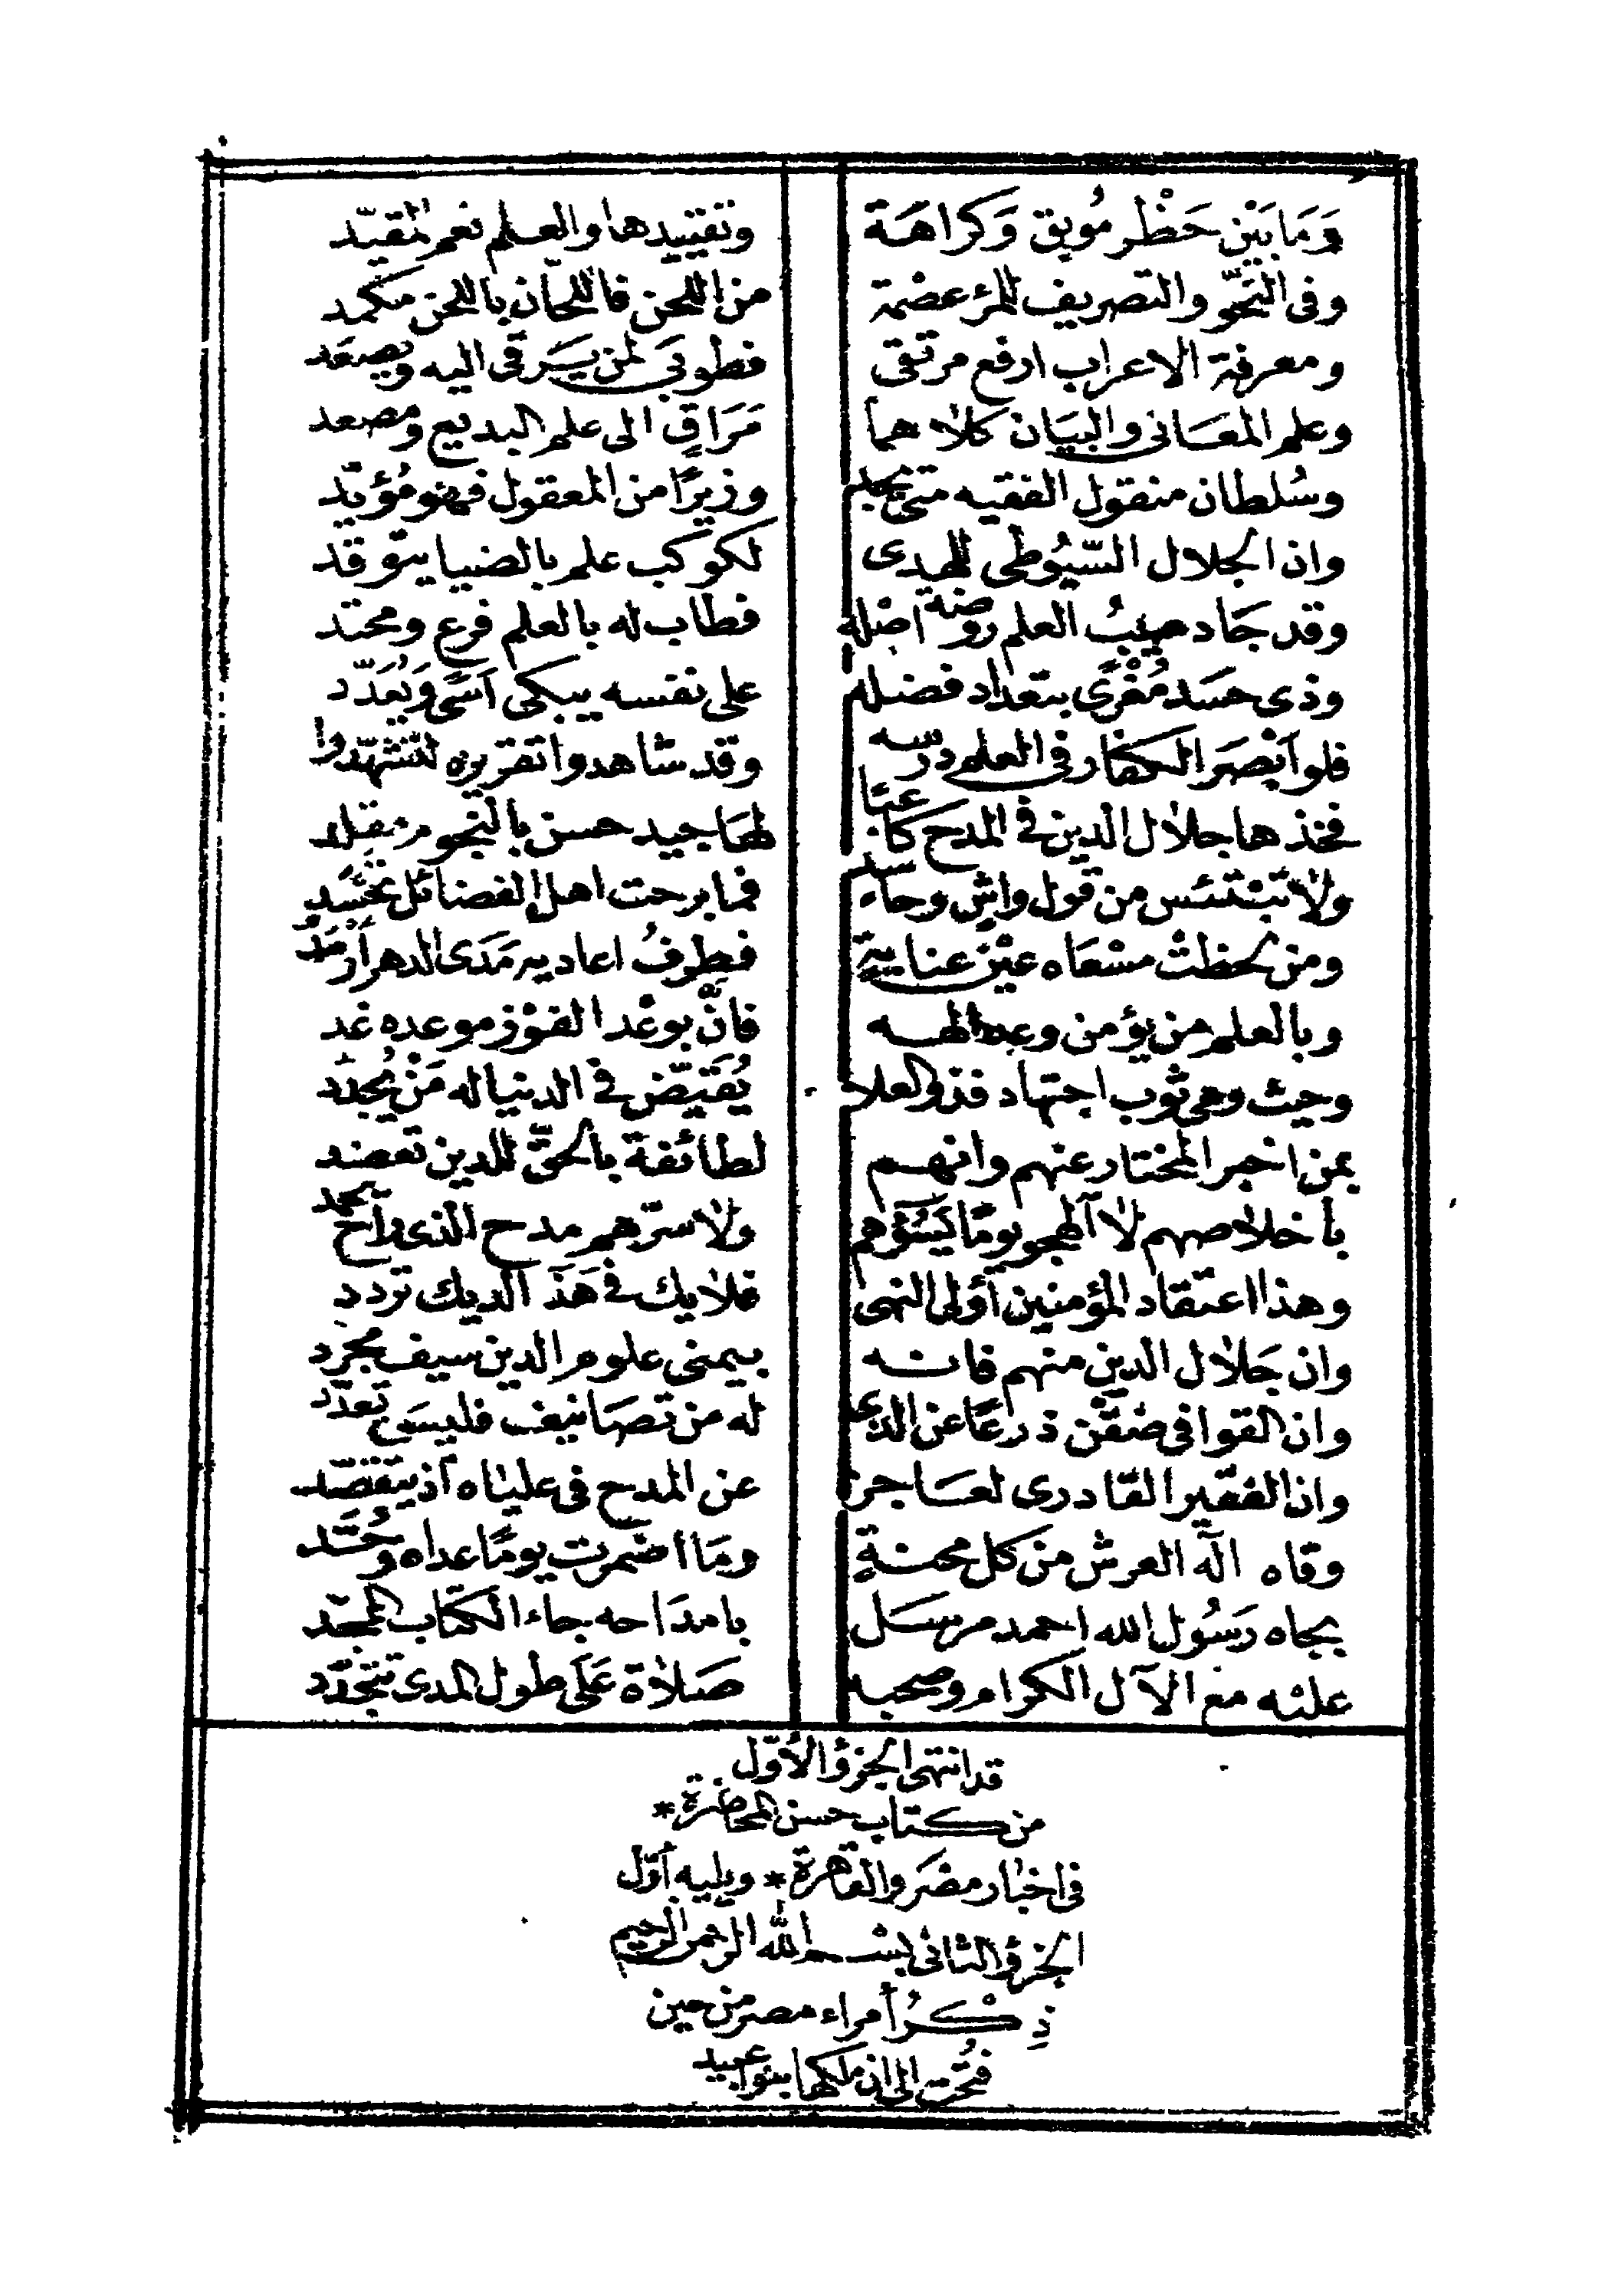 وَمَا بَيْن حَظْر مُوبق وَكراهَة وتقييدها والعلم نعم المقيّد
وفى النَّحو والتصريف للمرء عصْمة من اللحن فاللحّان باللحن مكمد
ومعرفة الاعراب ارفع مرتقى فطوبَى لمن يَرقَى اليه ويصعَد
وعلم المعَانى والبيَان كلاهما مَرَاقٍ الى علم البديع ومصعد
وسُلطان منقول الفقيه متى يجد وزيرًا من المعقول فهو مُؤيَّد
وان الجلال السّيُوطى للهدى لكوكب علم بالضيا يتوقد
وقد جَاد صَيِّبُ العلم روضة اصْله فطاب له بالعلم فرع ومحتد
وذى حسَد مُغْرًى بتعداد فضله على نفسه يبكى اَسًى وَيُعَدّد
فلو اَبْصَر الكفار فى العلم درسه وقد شاهدوا تقريره لتشهّدوا
فخذها جلال الدين فى المدح كاعبًا لهَا جيد حسن بالنجوم مقلد
ولا تبْتئس من قول واشٍ وحاسد فما برحت اهل الفضائل تحْسَد
ومن لحظتْ مسْعَاه عيْن عناية فطرفُ اعاديه مَدَى الدهر اَرمَد
وبالعلم من يؤمن وعد الهه فانَّ بوعْد الفوْز موعده غد
وحيث وهى ثوب اجتهاد فذو العلا يُقَيّض فى الدنيا له مَنْ يُجدّد
بمن اخبر المختار عنهم وانهم لطائفة بالحقّ للدين تعضد
باخلاصهم لا الهجو يومًا يَسُؤهم ولا سرّهم مدح الذى راح يحمد
وهذا اعتقاد المؤمنين اَولى النهى فلا يك فى هَذَا لديك تردد
وان جَلال الدين منهم فانه بيمنى علوم الدين سيف مجرد
وان القوافى ضقْن ذرعًا عن الذى له من تصَانيف فليسَ تعدّد
وان الفقير القادرى لعَاجز عن المدح فى علياه اذ يتقصّد
وقاه اله العرش من كل محنةٍ ومَا اضمرت يومًا عداه وحُسَّد
بجاه رَسُول الله احمد مرسَل بامداحه جاء الكتاب الممجّد
عليْه مع الآل الكرام وصحبه صَلاة عَلَى طول المدى تتجدّد
قد انتهى الجزؤ الأوّل
من كتاب حسن المحاضرة *
فى اخبار مصْر والقاهرة * ويليه أوّل
الجزؤ الثانى بسم الله الرحمن الرحيم
ذِكْرُ أمراء مصر من حين
فُتحت الى ان ملكها بنو عبيد